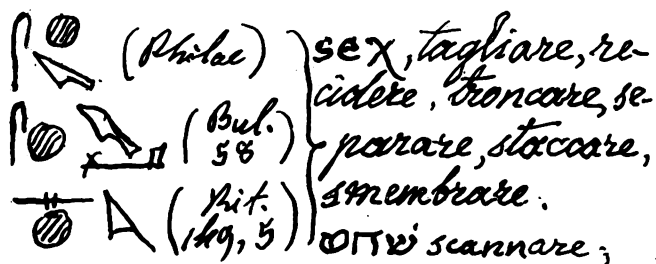 𓋴𓐍𓌪 (Philae)
𓋴𓐍𓌪𓂡 (Bul. 58)
𓊃𓐍𓌪 (Rit. 149, 5)
seχ, tagliare, re-
cidere, troncare, se-
parare, staccare,
smembrare.
שחט scannare;